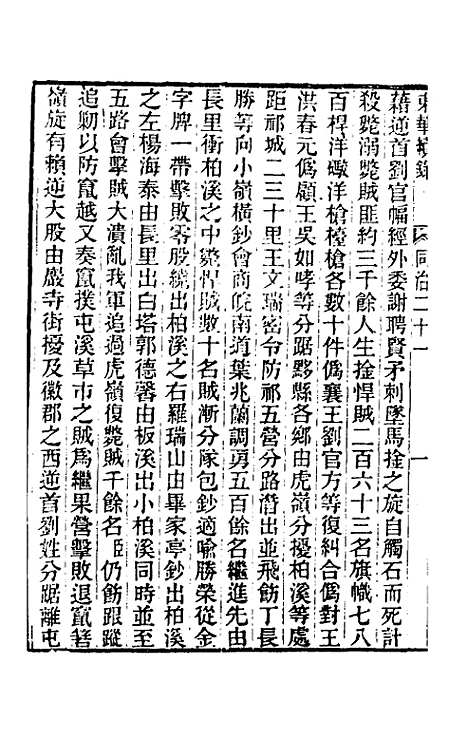 東華續錄 同治二十一 一
藉逆首劉官幅經外委謝聘賢矛刺墜馬捡之旋自觸石而死計
殺斃溺斃賊匪約三千餘人生捡悍賊二百六十三名旗幟七八
百桿洋礮洋槍檯槍各數十件僞襄王劉官方等復糾合僞對王
洪春元僞顧王吳如孝等分踞黟縣各鄉由虎嶺分擾柏溪等處
距祁城二三十里王文瑞密令防祁五營分路潛出並飛飭丁長
勝等向小嶺橫鈔會商皖南道葉兆蘭調勇五百餘名繼進先由
長里衝柏溪之中斃悍賊數十名賊漸分隊包鈔適喻勝榮從金
字牌一帶擊敗零股繞出柏溪之右羅瑞山由畢家亭鈔出柏溪
之左楊海泰由長里出白塔郭德馨由板溪出小柏溪同時並至
五路會擊賊大潰亂我軍追過虎嶺復斃賊千餘名臣仍飭跟蹤
追勦以防竄越又奏竄撲屯溪草市之賊爲繼果營擊敗退竄箬
嶺旋有賴逆大股由嚴寺街擾及徽郡之西逆首劉姓分踞離屯